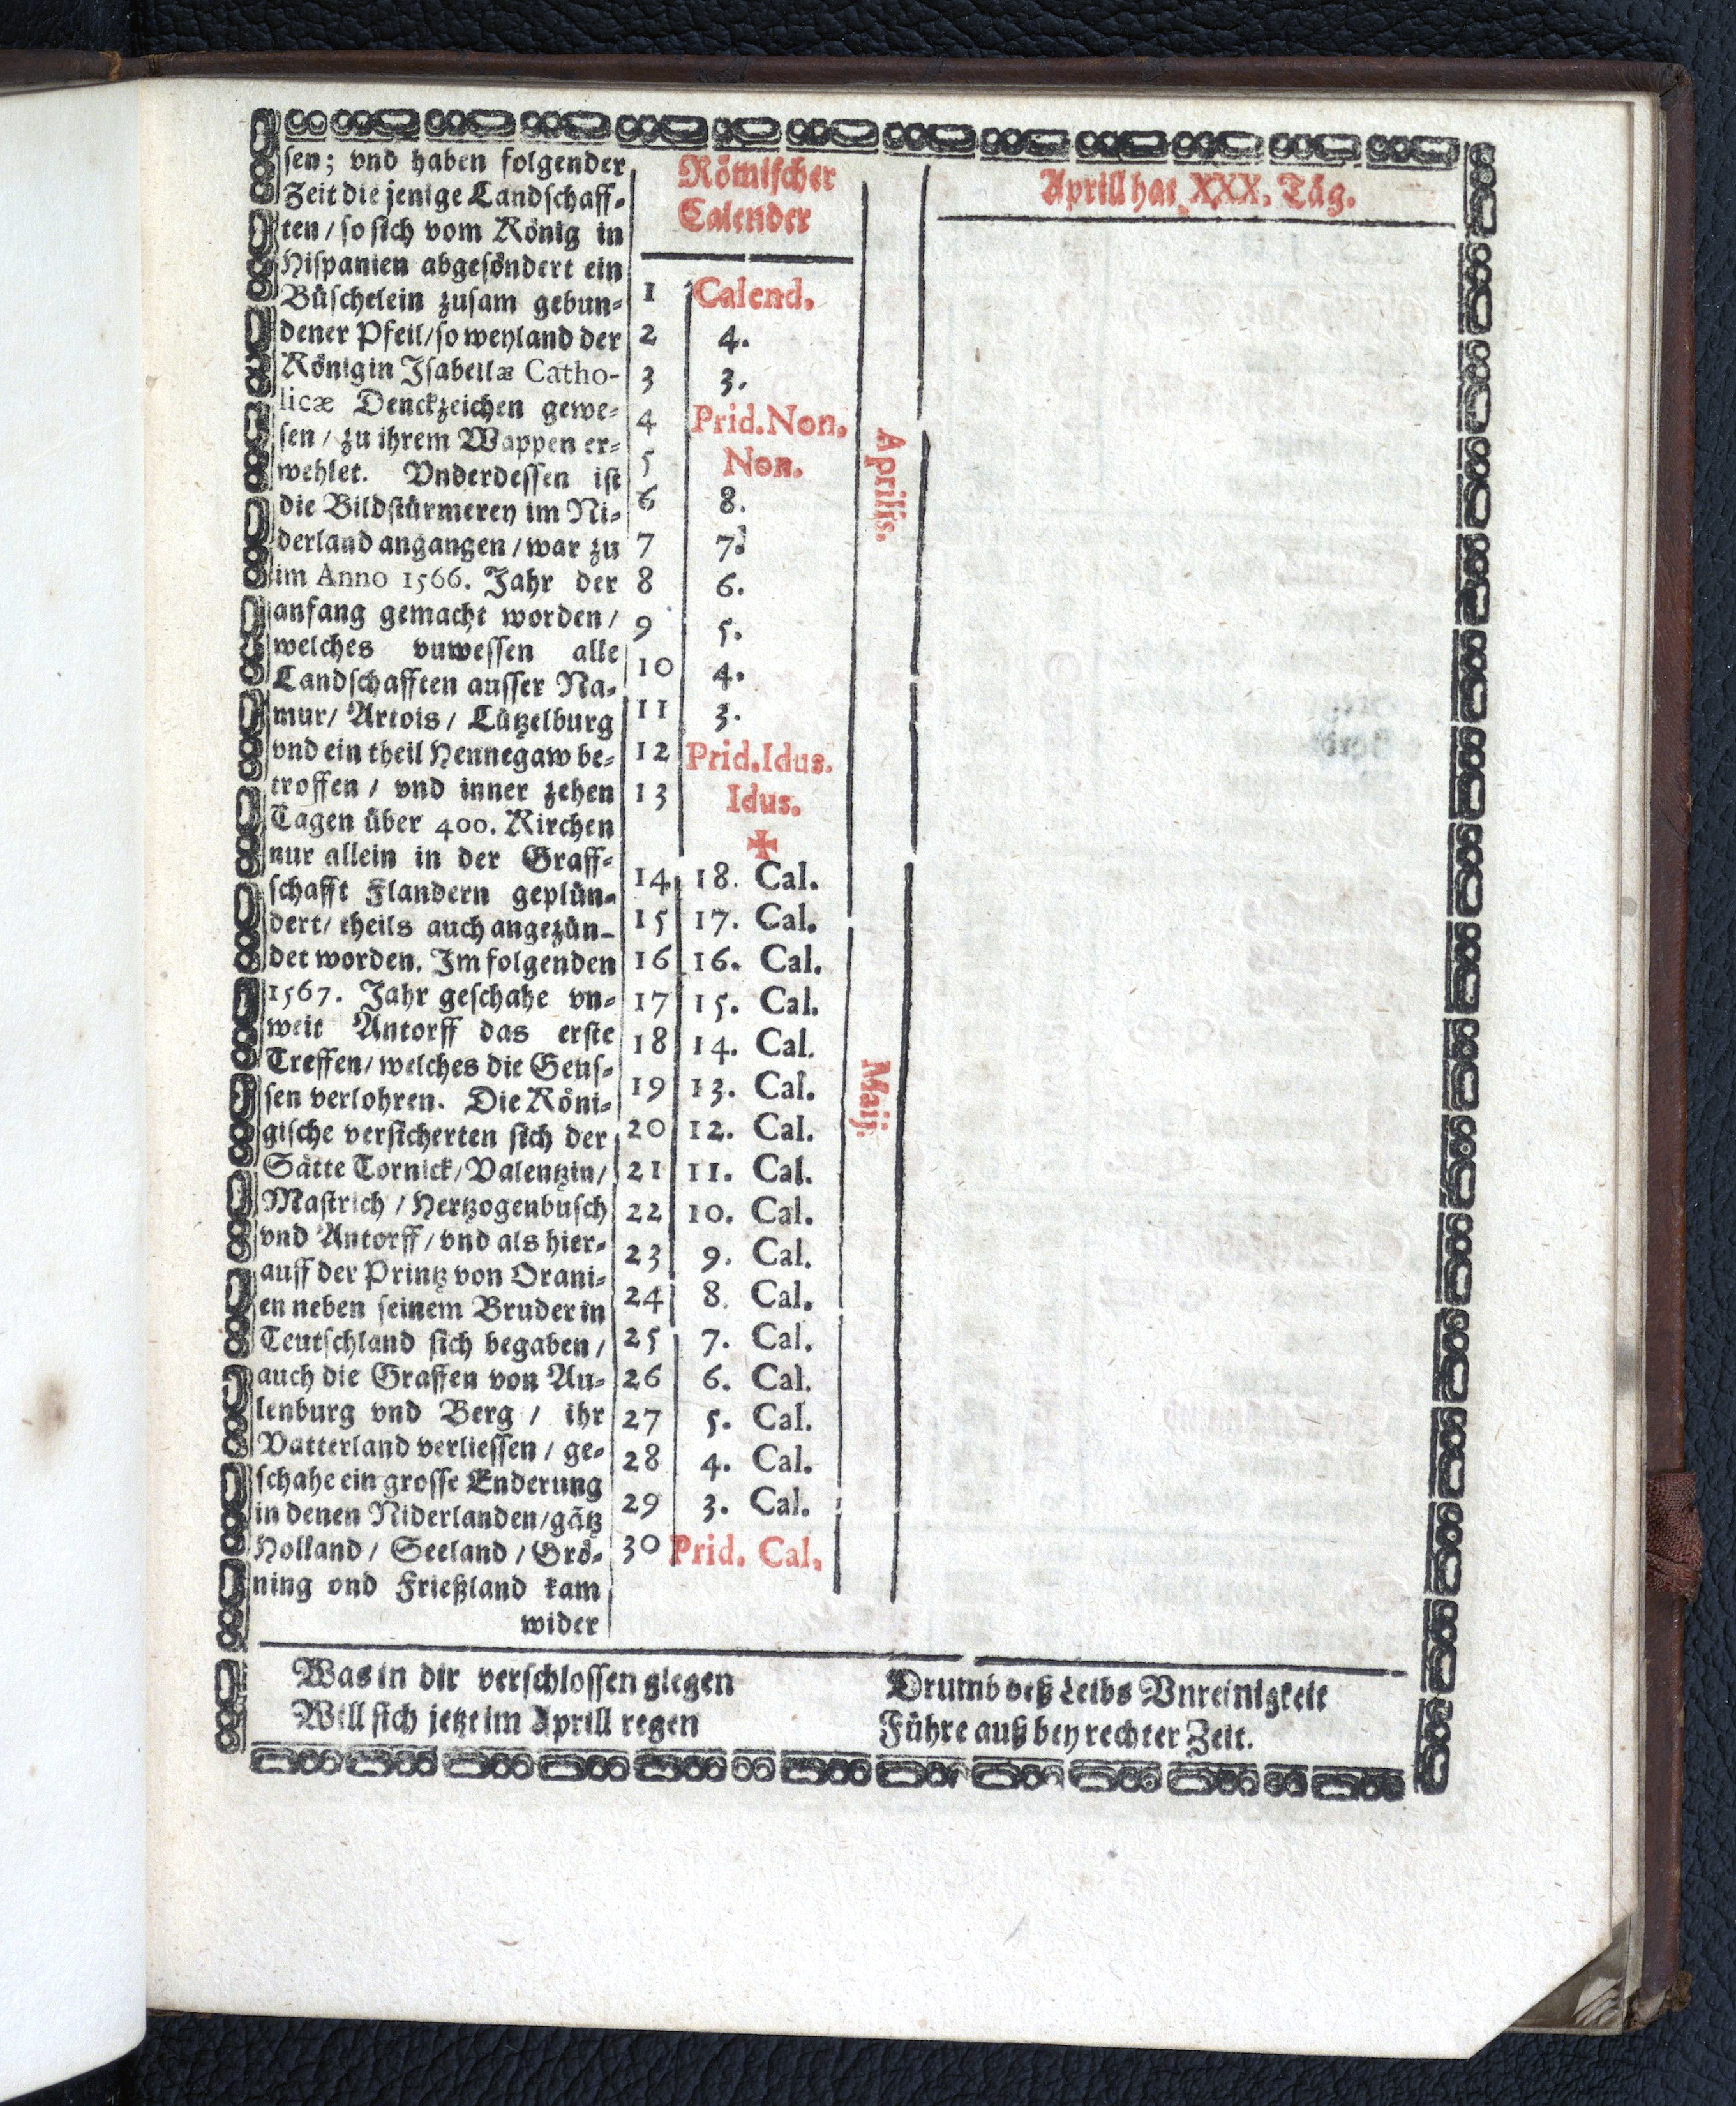 sen; vnd haben folgender
Zeit die jenige Landschaff-
ten / so sich vom König in
Hispanien abgesöndert ein
Büschelein zusam gebun-
dener Pfeil / so weyland der
Königin Isabellæ Catho-
licæ Denckzeichen gewe-
sen / zu ihrem Wappen er-
wehlet. Vnderdessen ist
die Bildstürmerey im Ni-
derland angangen / war zu
im Anno 1566. Jahr der
anfang gemacht worden /
welches vuwessen alle
Landschafften ausser Na-
mur / Artois / Lützelburg
vnd ein theil Hennegaw be-
troffen / vnd inner zehen
Tagen über 400. Kirchen
nur allein in der Graff-
schafft Flandern geplün-
dert / theils auch angezün-
det worden. Im folgenden
1567. Jahr geschahe vn-
weit Antorff das erste
Treffen / welches die Geus-
sen verlohren. Die Köni-
gische versicherten sich der
Sätte Tornick / Valentzin /
Mastrich / Hertzogenbusch
vnd Antorff / vnd als hier-
auff der Printz von Orani-
en neben seinem Bruder in
Teutschland sich begaben /
auch die Graffen von Au-
lenburg vnd Berg / ihr
Vatterland verliessen / ge-
schahe ein grosse Enderung
in denen Niderlanden / gätz
Holland / Seeland / Grö-
ning vnd Frießland kam
wider
Römischer
Calender
1 Calend.
2 4.
3 3.
4 Prid. Non.
5 Non.
6 8.
7 7.
8 6.
9 5.
10 4.
11 3.
12 Prid. Idus.
13 Idus.
✠
14 18. Cal.
15 17. Cal.
16 16. Cal.
17 15. Cal.
18 14. Cal.
19 13. Cal.
20 12. Cal.
21 11. Cal.
22 10. Cal.
23 9. Cal.
24 8. Cal.
25 7. Cal.
26 6. Cal.
27 5. Cal.
28 4. Cal.
29 3. Cal.
30 Prid. Cal.
Aprilis.
Maij.
Aprill hat XXX. Täg.
Was in dir verschlossen glegen
Will sich jetzt im Aprill regen
Drumb deß Leibs Vnreinigkeit
Führe auß bey rechter Zeit.